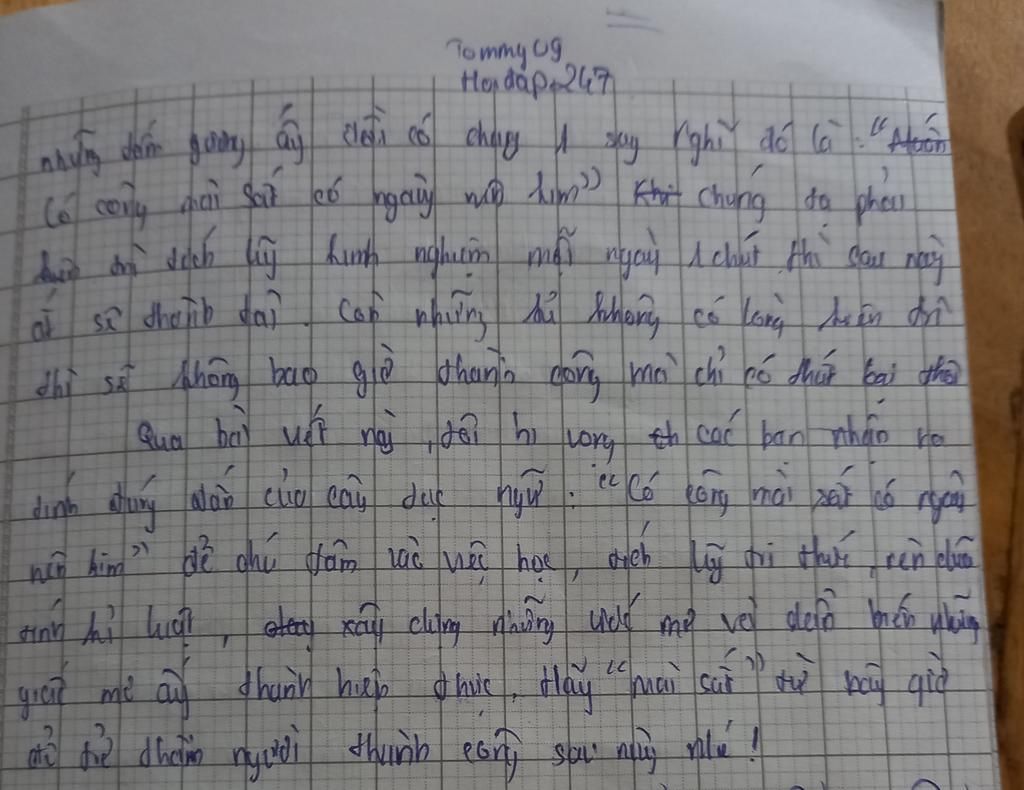 Tommy09
Hoidap247
những tấm gương ấy đều có chung 1 suy nghĩ đó là : "
Có công mài sắt có ngày nên kim" chúng ta phải
kiên trì tích lũy kinh nghiệm mỗi ngày 1 chút thì sau này
ắt sẽ thành tài. Còn những kẻ không có lòng kiên trì
thì sẽ không bao giờ thành công mà chỉ có thất bại thôi
Qua bài viết này, tôi hi vọng các bạn nhận ra
tính đúng đắn của câu tục ngữ : "Có công mài sắt có ngày
nên kim" để chú tâm vào việc học, tích lũy tri thức, rèn dũa
tính kỉ luật, xây dựng những ước mơ và dần biến những
giấc mơ ấy thành hiện thực. Hãy "mài sắt" từ bây giờ
để trở thành người thành công sau này nhé !